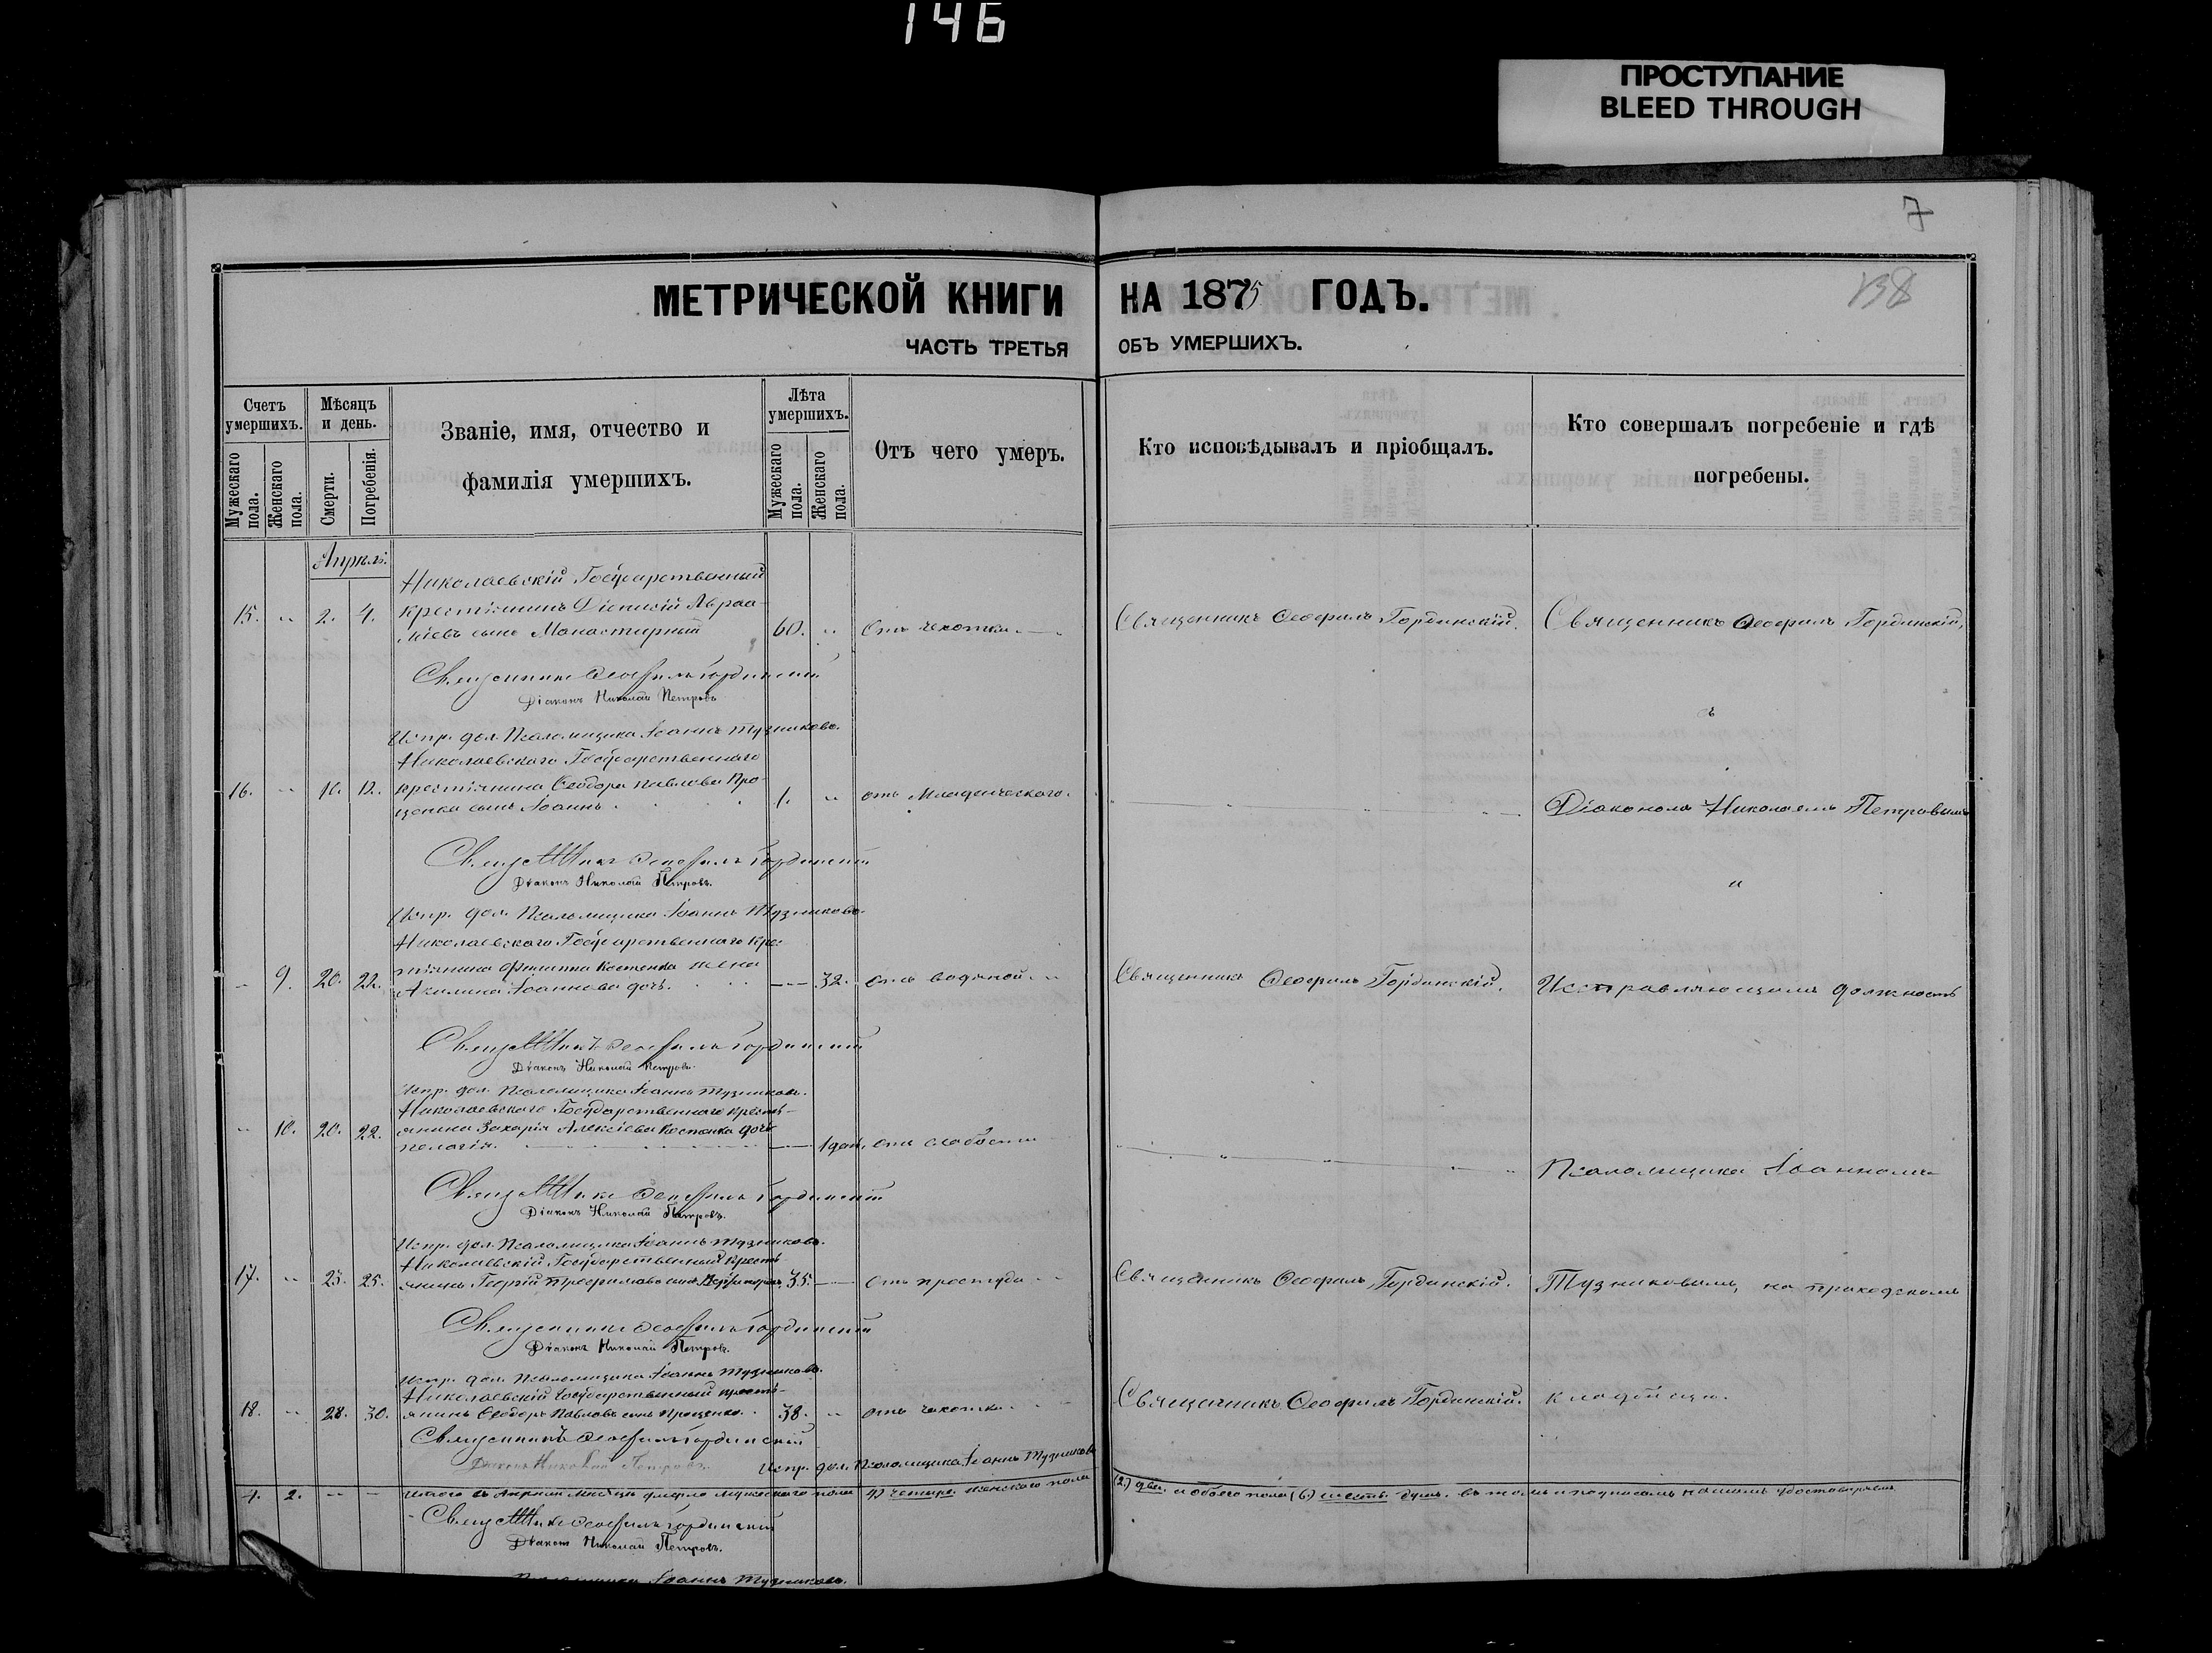 146
ПРОСТУПАНИЕ
BLEED THROUGH
7
138
МЕТРИЧЕСКОЙ КНИГИ НА 1875 ГОДЪ.
ЧАСТЬ ТРЕТЬЯ ОБЪ УМЕРШИХЪ.
Счетъ умершихъ.
Мужескаго пола.
Женскаго пола.
Мѣсяцъ и день.
Смерти.
Погребенія.
Званіе, имя, отчество и
фамилія умершихъ.
Лѣта умершихъ.
Мужескаго пола.
Женскаго пола.
Отъ чего умеръ.
Кто исповѣдывалъ и пріобщалъ.
Кто совершалъ погребеніе и гдѣ
погребены.
Апрѣль.
Николаевскій Государственный
15. " 2. 4. крестьянинъ Діонисій Авраа-
міевъ сынъ Монастырный 60. " Отъ чахотки. Священникъ Ѳеофилъ Гординскій. Священникъ Ѳеофилъ Гординскій,
Священникъ Ѳеофилъ Гординскій
Діаконъ Николай Петровъ
съ
Испр. дол. Псаломщика Іоаннъ Тузниковъ.
Николаевскаго Государственнаго
16. " 10. 12. крестьянина Ѳеодора Павлова Про-
ценка сынъ Іоаннъ. 1. " отъ Младенческаго. Діакономъ Николаемъ Петровымъ
Священникъ Ѳеофилъ Гординскій
Діаконъ Николай Петровъ.
и
Испр. дол. Псаломщика Іоаннъ Тузниковъ.
Николаевскаго Государственнаго крес-
" 9. 20. 22. тьянина Филиппа Костенка жена
Акилина Іоаннова дочь. 32. отъ водяной. Священникъ Ѳеофилъ Гординскій. Исправляющимъ должность
Священникъ Ѳеофилъ Гординскій
Діаконъ Николай Петровъ.
Испр. дол. Псаломщика Іоаннъ Тузниковъ.
Николаевскаго Государственнаго кресть-
" 10. 20. 22. янина Захарія Алексіева Костенка дочь
Пелагія. 1 дня. отъ слабости Псаломщика Іоанномъ
Священникъ Ѳеофилъ Гординскій
Діаконъ Николай Петровъ.
Испр. дол. Псаломщика Іоаннъ Тузниковъ.
Николаевскій Государственный кресть-
17. " 23. 25. янинъ Георгій Трофимовъ сынъ 35. Отъ простуды Священникъ Ѳеофилъ Гординскій. Тузниковымъ, на приходскомъ
Священникъ Ѳеофилъ Гординскій
Діаконъ Николай Петровъ.
Испр. дол. Псаломщика Іоаннъ Тузниковъ.
Николаевскій Государственный кресть-
18. " 28. 30. янинъ Ѳеодоръ Павловъ сынъ Проценко. 38. " отъ чахотки. Священникъ Ѳеофилъ Гординскій. кладбищѣ.
Священникъ Ѳеофилъ Гординскій
Діаконъ Николай Петровъ. Испр. дол. Псаломщика Іоаннъ Тузниковъ
4. 2. Итого въ Апрѣлѣ Мѣсяцѣ умерло мужескаго пола 4) четыре женскаго пола (2.) две. и обоего пола (6.) шесть душъ. въ томъ и подписомъ нашимъ удостовѣряемъ
Священникъ Ѳеофилъ Гординскій
Діаконъ Николай Петровъ.
Псаломщика Іоаннъ Тузниковъ.